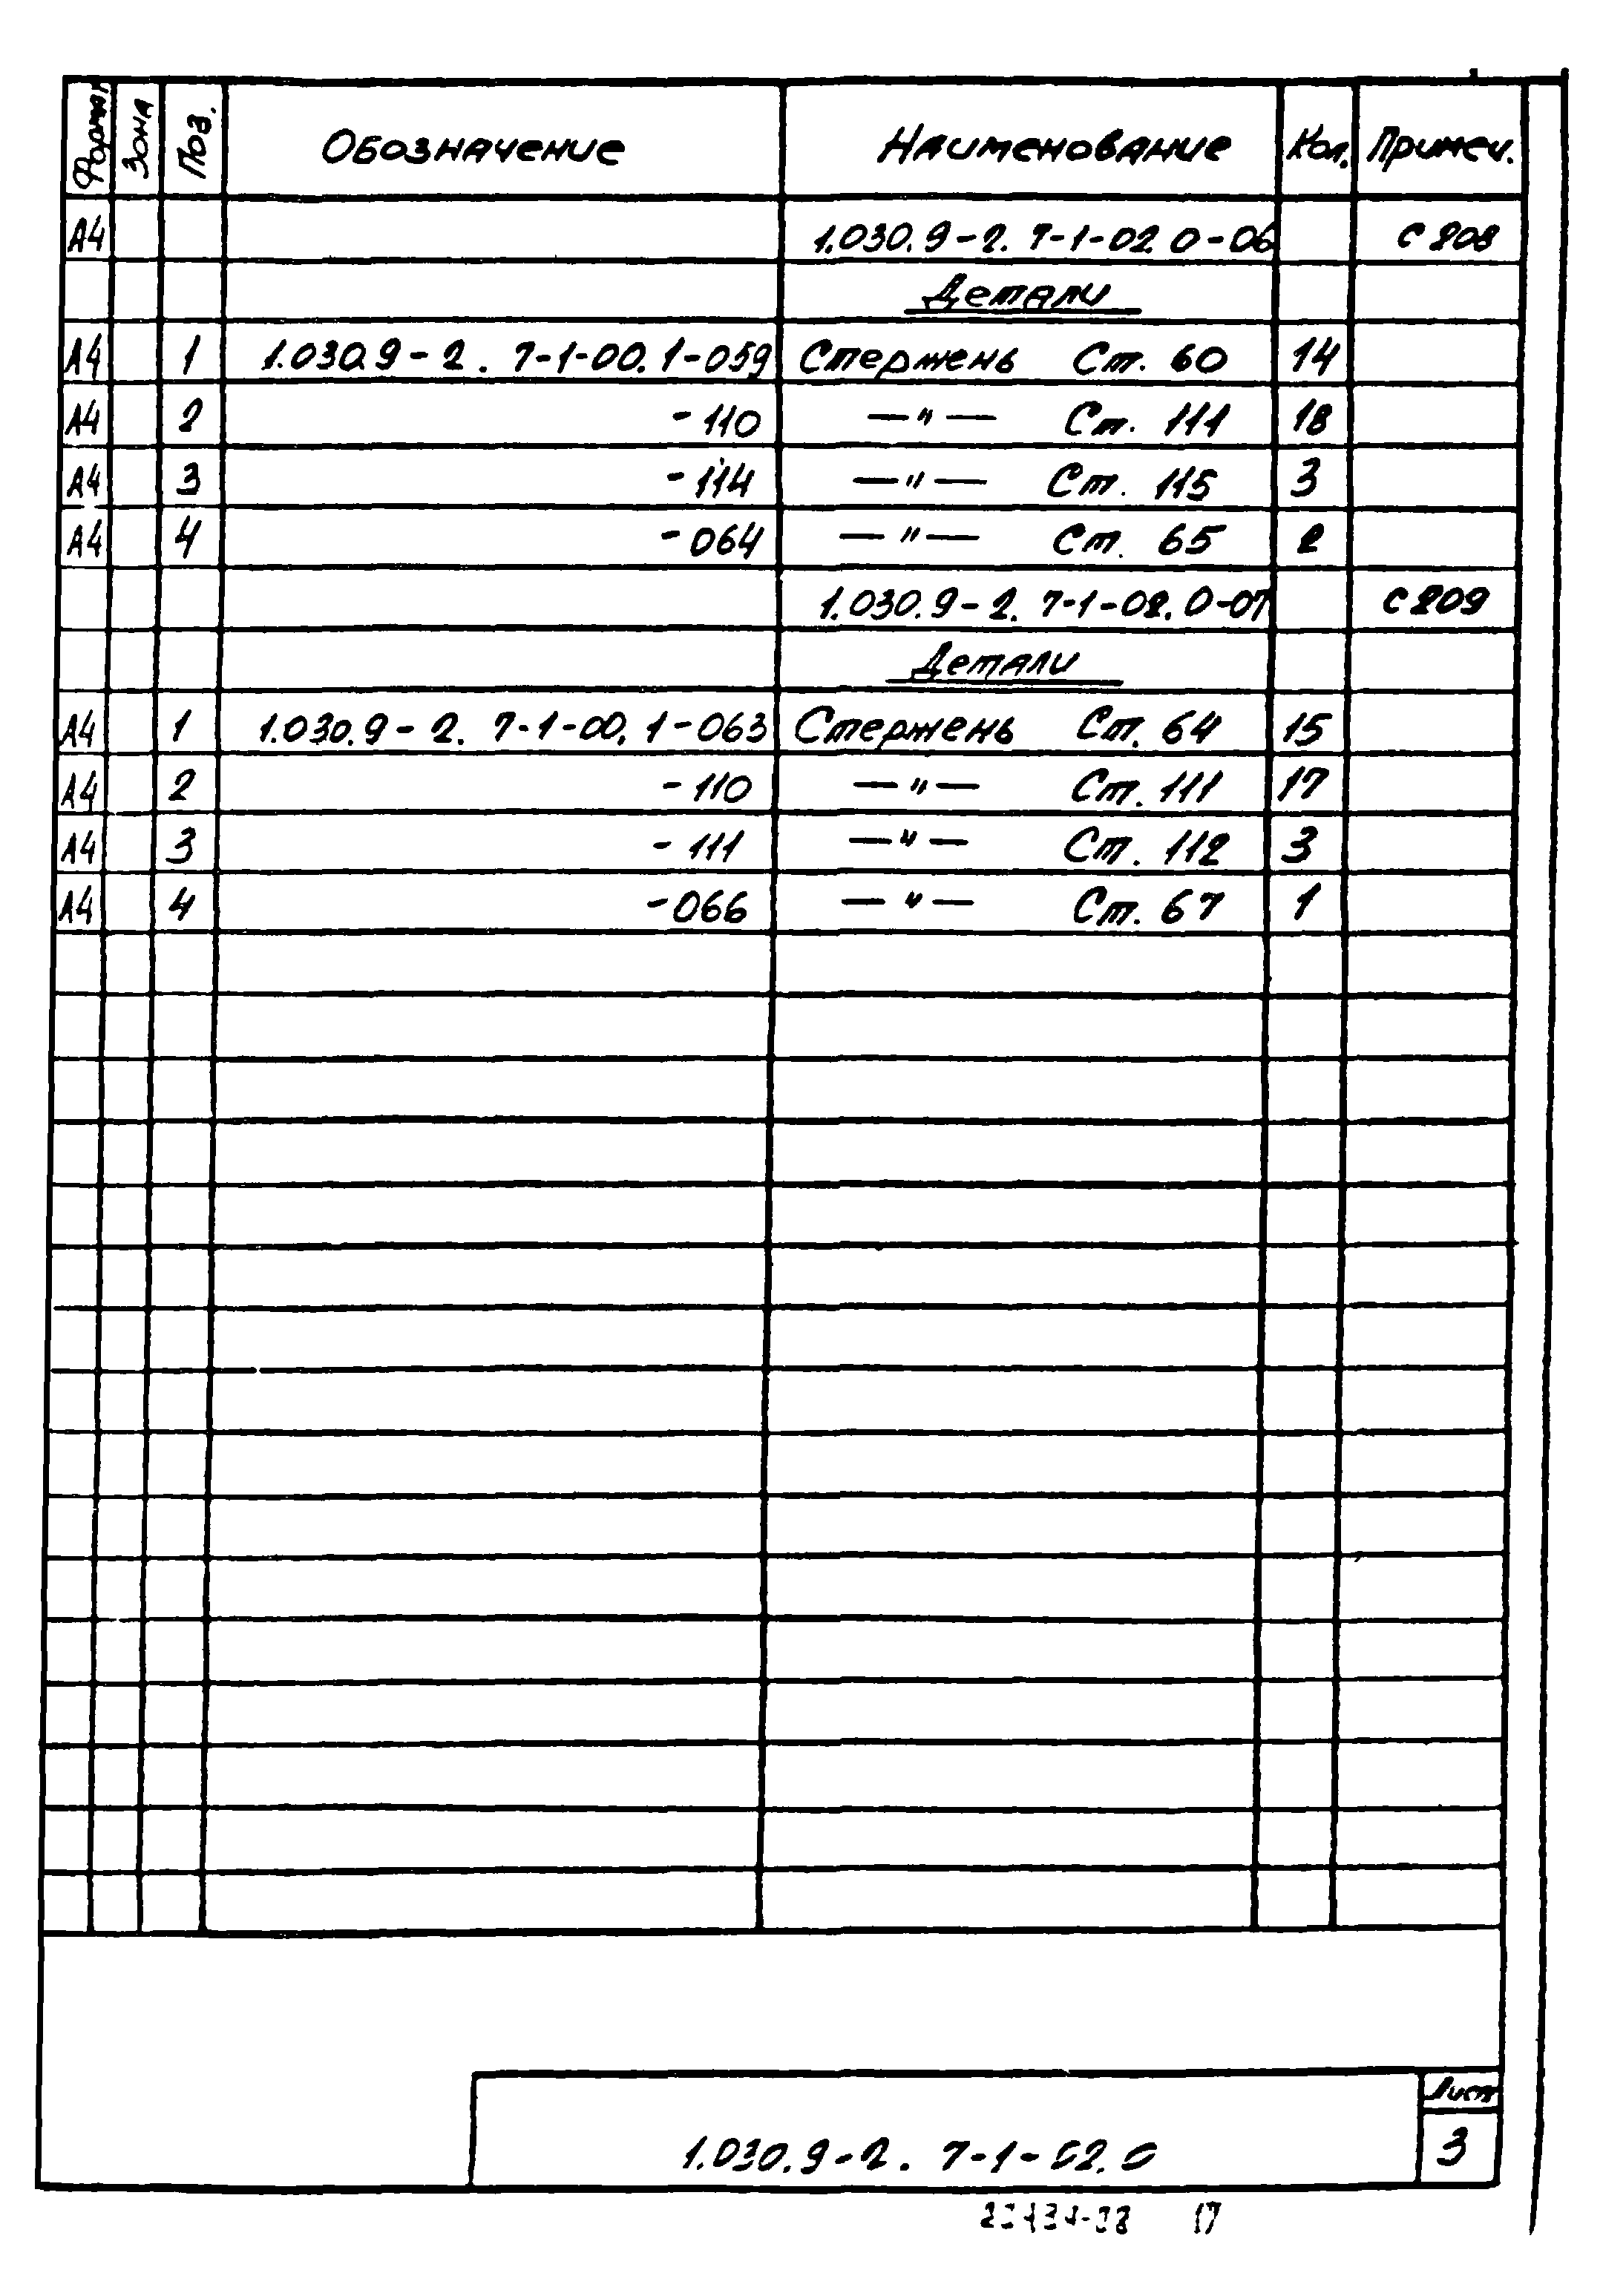 Формат Зона Поз. Обозначение Наименование Кол. Примеч.
А4 1.030.9-2. 7-1-02.0-06 С208
Детали
А4 1 1.030.9-2. 7-1-00.1-059 Стержень Ст. 60 14
А4 2 -110 —"— Ст. 111 18
А4 3 -114 —"— Ст. 115 3
А4 4 -064 —"— Ст. 65 2
1.030.9-2. 7-1-02.0-07 С209
Детали
А4 1 1.030.9-2. 7-1-00.1-063 Стержень Ст. 64 15
А4 2 -110 —"— Ст. 111 17
А4 3 -111 —"— Ст. 112 3
А4 4 -066 —"— Ст. 67 1
Лист
1.030.9-2. 7-1-02.0 3
17